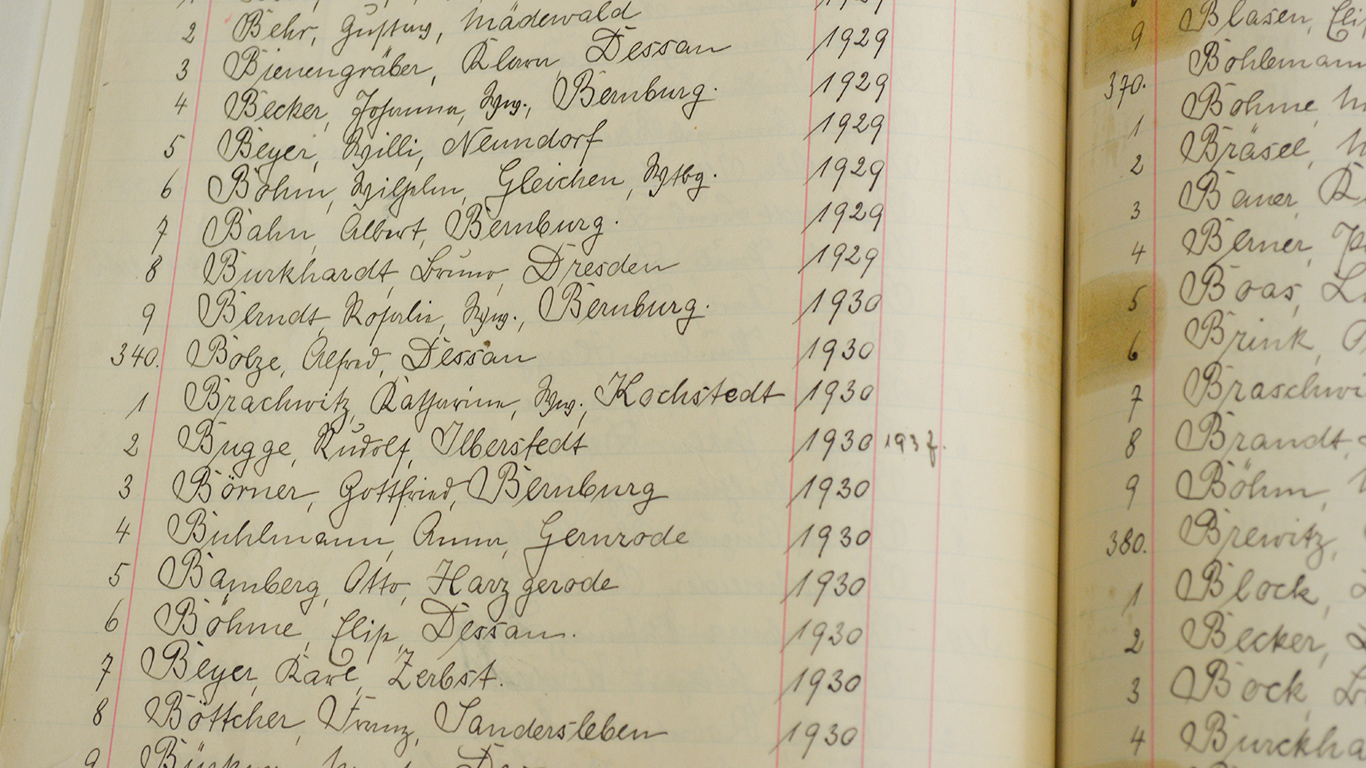 2 Behr, Gustav, Mädewald 1929
3 Bienengräber, Klara, Dessau 1929
4 Becker, Johanna, Ww., Bernburg. 1929
5 Beyer, Willi, Neundorf 1929
6 Böhm, Wilhelm, Gleichen, Wtbg. 1929
7 Bahn, Albert, Bernburg. 1929
8 Burkhardt, Bruno, Dresden 1929
9 Berndt, Rosalie, Ww., Bernburg. 1930
340. Bolze, Alfred, Dessau 1930
1 Brachwitz, Katharina, Ww., Kochstedt 1930
2 Bugge, Rudolf, Ilberstedt 1930
3 Börner, Gottfried, Bernburg 1930
4 Buhlmann, Anna, Gernrode 1930
5 Bamberg, Otto, Harzgerode 1930
6 Böhme, Elise, Dessau. 1930
7 Beyer, Karl, Zerbst. 1930
8 Böttcher, Franz, Sandersleben 1930
9
Blasen,
9 Böhlemann
370. Böhme,
1 Bräsel,
2 Bauer,
3 Berner,
4 Boas,
5 Brink,
6 Braschwi
7 Brandt,
8 Böhm,
9 Brewitz,
380. Block,
1 Becker,
2 Bock,
3 Burckha
4